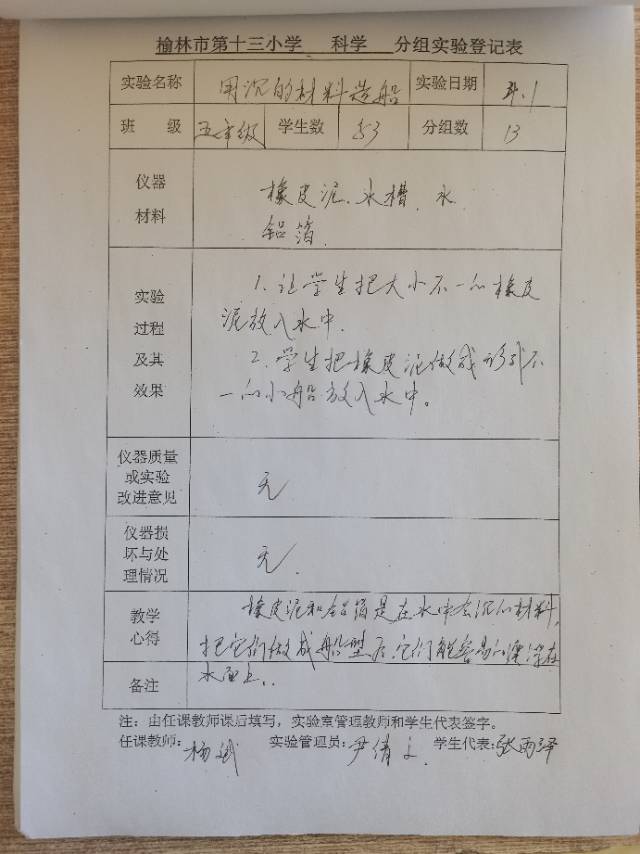 榆林市第十三小学 科学 分组实验登记表
实验名称 用沉的材料造船 实验日期 4.1
班 级 五年级 学生数 53 分组数 13
仪器
材料
橡皮泥、水槽、水
铝箔.
实验
过程
及其
效果
1. 让学生把大小不一的橡皮
泥放入水中.
2. 学生把橡皮泥做成形状不
一的小船放入水中。
仪器质量
或实验
改进意见
无
仪器损
坏与处
理情况
无.
教学
心得
橡皮泥和铝箔是在水中会沉的材料,
把它们做成船型后,它们能容易的漂浮在
备注 水面上..
注:由任课教师课后填写,实验室管理教师和学生代表签字。
任课教师: 杨 实验管理员: 尹倩 学生代表: 张雨泽